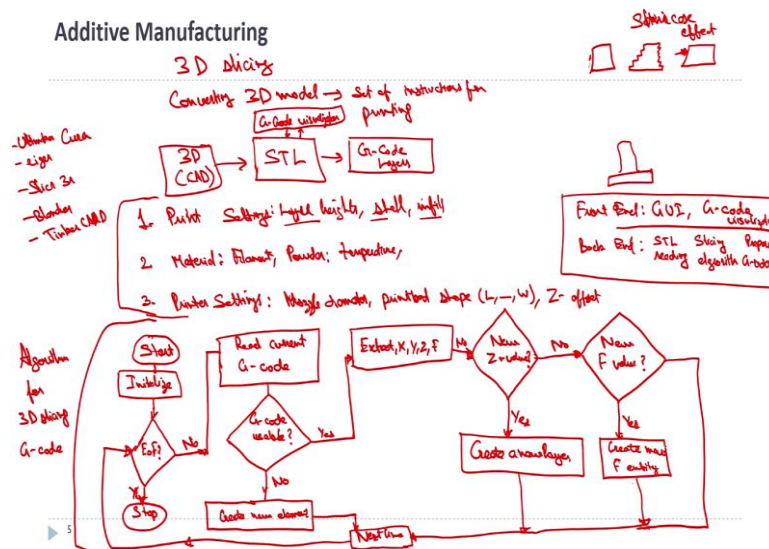 Additive Manufacturing
Staircase effect
3D slicing
Converting 3D model → Set of instructions for printing
G-Code visualizer
3D (CAD)
STL
G-Code Layers
- Ultimaker Cura
- Slic3r
- Blender
- TinkerCAD
1. Print Settings: Layer heights, shell, infill
2. Material: Filament, Powder: temperature,
3. Printer Settings: Nozzle diameter, printbed shape (L, -, W), Z-offset
Front End: GUI, G-code
Back End: STL reading Slicing algorithm
Algorithm for 3D slicing G-code
Start
Initialize
Eof?
No
Yes
Stop
Read current G-code
G-code usable?
Yes
No
Create new element
Extract, X, Y, Z, F
No
New Z-value?
No
Yes
Create a new layer
New F value?
Yes
Create new F entity
Next line
5